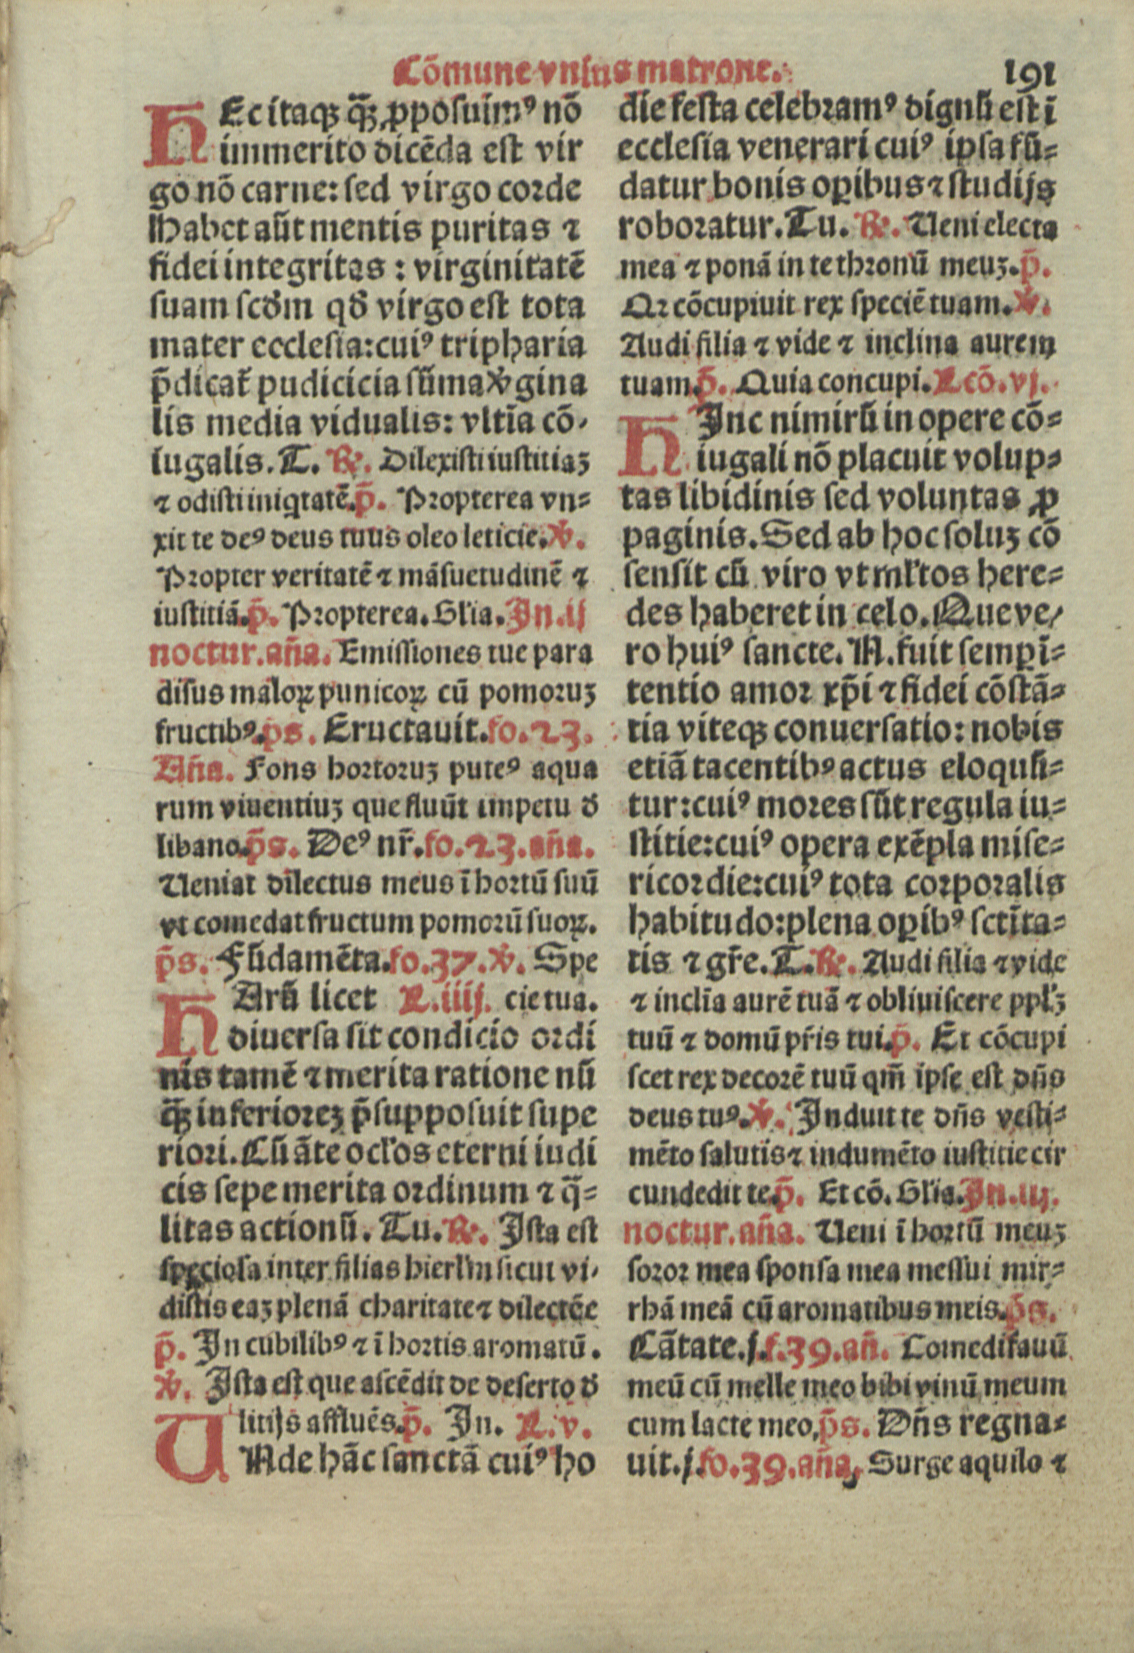 Cōmune vnius matrone. 191
HEc itaqꝫ q̄ꝫ ꝓposuimꝰ nō
immerito dicēda est vir
go nō carne: sed virgo corde
Habet aūt mentis puritas ⁊
fidei integritas : virginitatē
suam scd̄m qd̄ virgo est tota
mater ecclesia: cuiꝰ tripharia
p̄dicat᷑ pudicicia sūma ℣gina
lis media vidualis: vltīa cō-
iugalis. T. ℟. Dilexisti iustitiaꝫ
⁊ odisti iniqtatē. p̄. Propterea vn-
xit te deꝰ deus tuus oleo leticie. ℣.
Propter veritatē ⁊ māsuetudinē ⁊
iustitiā. p̄. Propterea. Glia. In. ij
noctur. añа. Emissiones tue para
disus maloꝝ punicoꝝ cū pomoruꝫ
fructibꝰ. ps. Eructauit. fo. 23.
Aña. Fons hortoruꝫ puteꝰ aqua
rum viuentiuꝫ que fluūt impetu d̄
libano. p̄s. Deꝰ nr̄. fo. 23. aña.
Ueniat dilectus meus ī hortū suū
vt comedat fructum pomorū suoꝝ.
p̄s. Fūdamēta. fo. 37. ℣. Spe
HArū licet L. iiij. cie tua.
diuersa sit condicio ordi
nis tamē ⁊ merita ratione nū
q̄ꝫ inferioreꝫ p̄supposuit supe
riori. Cū āte ocl'os eterni iudi
cis sepe merita ordinum ⁊ q̄-
litas actionū. Tu. ℟. Ista est
speciosa inter filias hierl'm sicut vi-
distis eaꝫ plenā charitate ⁊ dilectōe
p̄. In cubilibꝰ ⁊ ī hortis aromatū.
℣. Ista est que ascēdit de deserto d̄
litijs affluēs. p̄. In. L. v.
UNde hāc sanctā cuiꝰ ho
die festa celebramꝰ dignū est ī
ecclesia venerari cuiꝰ ipsa fū-
datur bonis oꝑibus ⁊ studijs
roboratur. Tu. ℟. Ueni electa
mea ⁊ ponā in te thronū meuꝫ. p̄.
Qr cōcupiuit rex speciē tuam. ℣.
Audi filia ⁊ vide ⁊ inclina aurem
tuam. p̄. Quia concupi. Lcō. vj.
HInc nimirū in opere cō-
iugali nō placuit volup-
tas libidinis sed voluntas ꝓ
paginis. Sed ab hoc soluꝫ cō
sensit cū viro vt ml'tos here-
des haberet in celo. Que ve-
ro huiꝰ sancte. N. fuit semꝑ ī-
tentio amor xp̄i ⁊ fidei cōstā-
tia viteqꝫ conuersatio: nobis
etiā tacentibꝰ actus eloquū-
tur: cuiꝰ mores sūt regula iu-
stitie: cuiꝰ opera exēpla mise-
ricordie: cuiꝰ tota corporalis
habitudo: plena oꝑibꝰ sctīta-
tis ⁊ gr̄e. T. ℟. Audi filia ⁊ vide
⁊ inclīa aurē tuā ⁊ obliuiscere ppl'ꝫ
tuū ⁊ domū pr̄is tui. p̄. Et cōcupi
scet rex decorē tuū qm̄ ipse est dñs
deus tuꝰ. ℣. Induit te dñs vesti-
mēto salutis ⁊ indumēto iustitie cir
cundedit te. p̄. Et cō. Gl'ia. In. iij.
noctur. aña. Ueni ī hortū meuꝫ
soror mea sponsa mea messui mir-
rhā meā cū aromatibus meis. p̄s.
Cātate. j. f. 39. añ. Comedi fauū
meū cū melle meo bibi vinū meum
cum lacte meo, p̄s. Dñs regna-
uit. j. fo. 39. aña, Surge aquilo ⁊